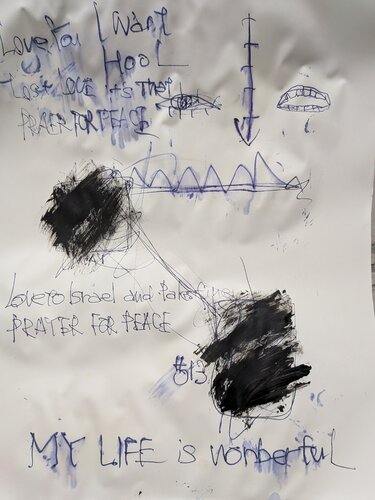 Love You I Want
HOOL
Lost LOVE it's that
PRAYER FOR PEACE
Love to Israel and
PRAYER FOR PEACE
613
MY LIFE is wonderful